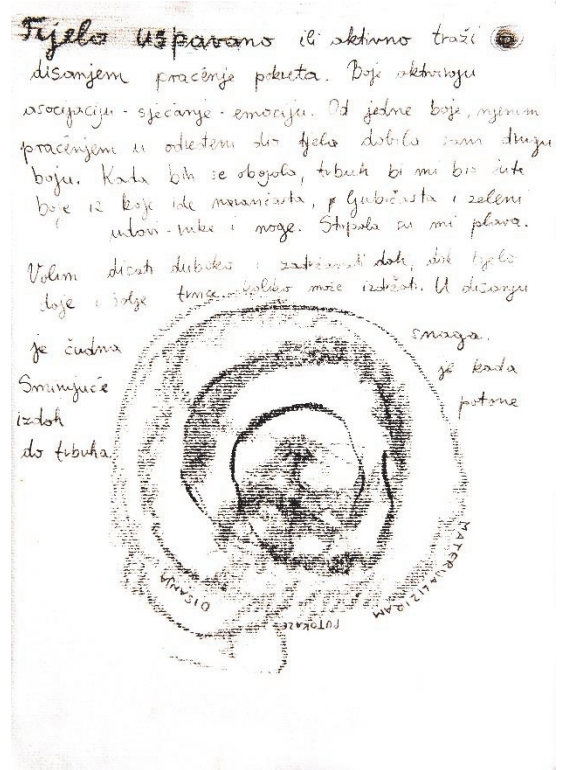 Tijelo uspavano ili aktivno traži
disanjem praćenje pokreta. Boje aktiviraju
asocijaciju - sjećanje - emociju. Od jedne boje, njenim
praćenjem u određeni dio tijela dobila sam drugu
boju. Kada bih se obojala, trbuh bi mi bio žute
boje iz koje ide narančasta, ljubičasta i zeleni
udovi - ruke i noge. Stopala su mi plava.
Volim disati duboko i zadržavati dah, dok tijelo
traje i dalje koliko može izdržati. U disanju
je čudna snaga.
Smirujuće je kada
izdah potone
do trbuha
DISANJA
PUTOKAZE
MATERIJALIZIRAM